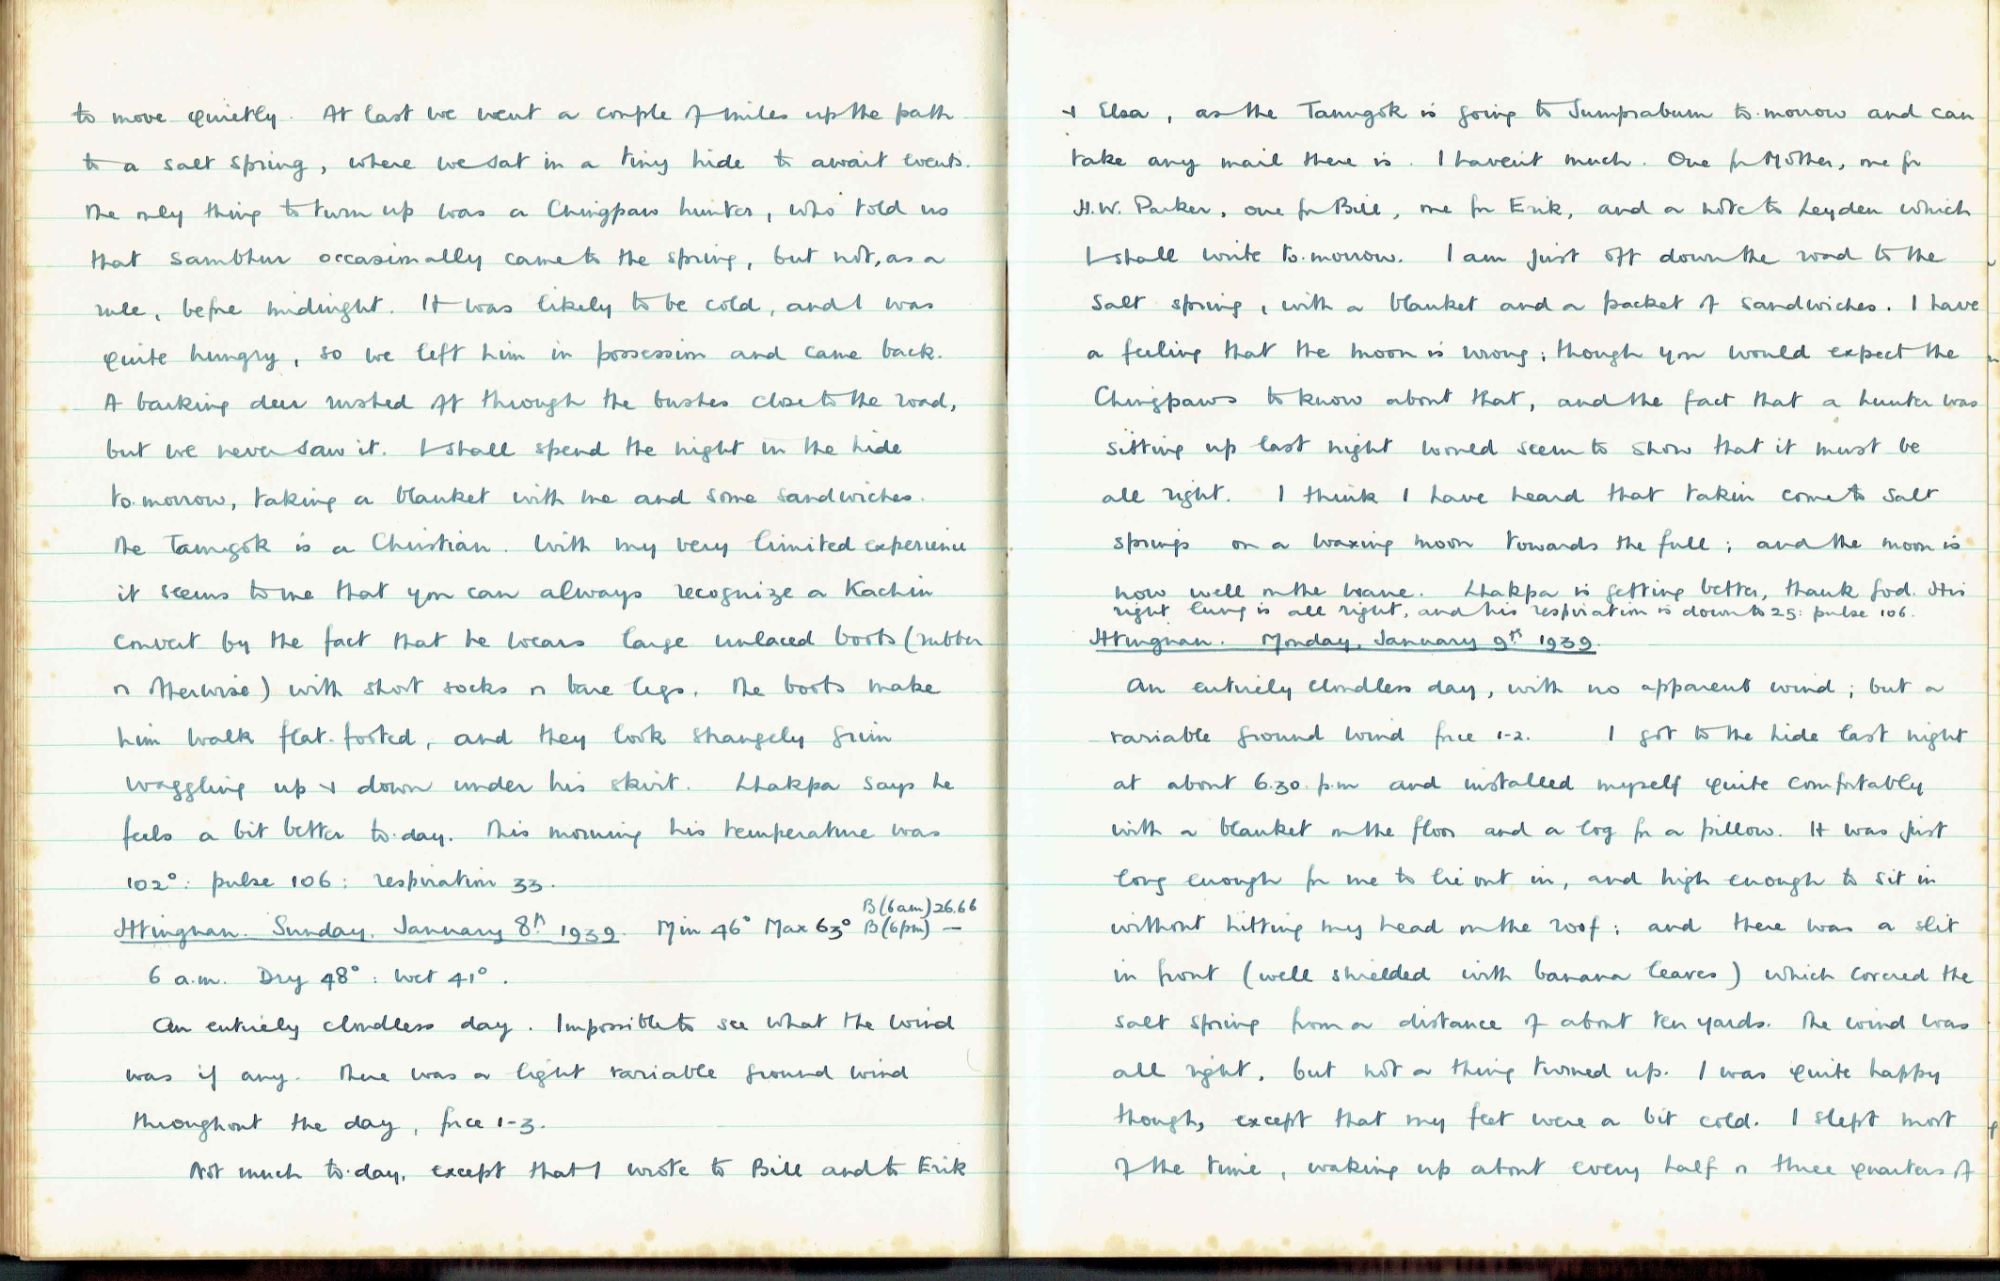 to move quietly. At last we went a couple of miles up the path
to a salt spring, where we sat in a tiny hide to await events.
The only thing to turn up was a Chingpaw hunter, who told us
that sambhur occasionally came to the spring, but not, as a
rule, before midnight. It was likely to be cold, and I was
quite hungry, so we left him in possession and came back.
A barking deer rushed off through the bushes close to the road,
but we never saw it. I shall spend the night in the hide
to-morrow, taking a blanket with me and some sandwiches.
The Taungok is a Christian. With my very limited experience
it seems to me that you can always recognize a Kachin
convert by the fact that he wears large unlaced boots (rubber
or otherwise) with short socks or bare legs. The boots make
him walk flat-footed, and they look strangely grim
waggling up & down under his skirt. Lhakpa says he
feels a bit better to-day. This morning his temperature was
102°: pulse 106: respiration 33.
Htingnan. Sunday. January 8th 1939. Min 46° Max 63° B(6am) 26.66 B(6pm) —
6 a.m. Dry 48°: Wet 41°.
An entirely cloudless day. Impossible to see what the wind
was if any. There was a light variable ground wind
throughout the day, force 1-3.
Not much to-day, except that I wrote to Bill and to Erik
& Elsa, as the Taungok is going to Sumprabum to-morrow and can
take any mail there is. I haven't much. One for Mother, one for
H.W. Parker, one for Bill, one for Erik, and a note to Leyden which
I shall write to-morrow. I am just off down the road to the
salt spring, with a blanket and a packet of sandwiches. I have
a feeling that the moon is wrong; though you would expect the
Chingpaws to know about that, and the fact that a hunter was
sitting up last night would seem to show that it must be
all right. I think I have heard that takin come to salt
springs on a waxing moon towards the full; and the moon is
now well on the wane. Lhakpa is getting better, thank God. His
right lung is all right, and his respiration is down to 25: pulse 106.
Htingnan. Monday, January 9th 1939.
An entirely cloudless day, with no apparent wind; but a
variable ground wind force 1-2. I got to the hide last night
at about 6.30. p.m and installed myself quite comfortably
with a blanket on the floor and a log for a pillow. It was just
long enough for me to lie out in, and high enough to sit in
without hitting my head on the roof; and there was a slit
in front (well shielded with banana leaves) which covered the
salt spring from a distance of about ten yards. The wind was
all right, but not a thing turned up. I was quite happy
though, except that my feet were a bit cold. I slept most
of the time, waking up about every half or three quarters of